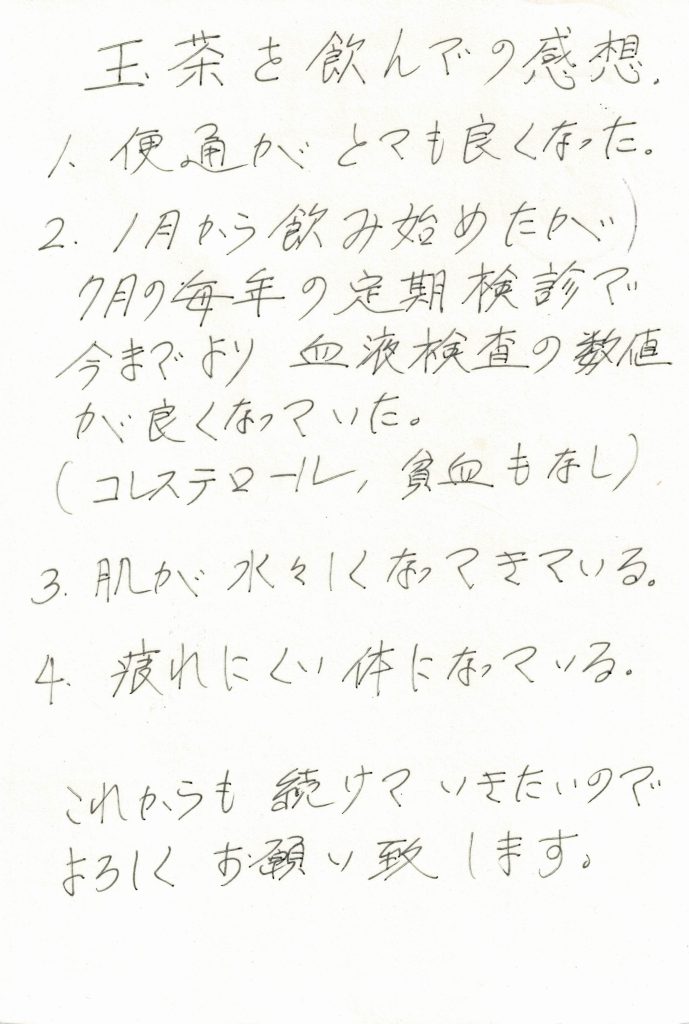 玉茶を飲んでの感想.
1. 便通がとても良くなった。
2. 1月から飲み始めたが)
7月の毎年の定期検診で
今までより 血液検査の数値
が良くなっていた。
(コレステロール, 貧血もなし)
3. 肌が水々しくなってきている。
4. 疲れにくい体になっている。
これからも続けていきたいので
よろしくお願い致します。